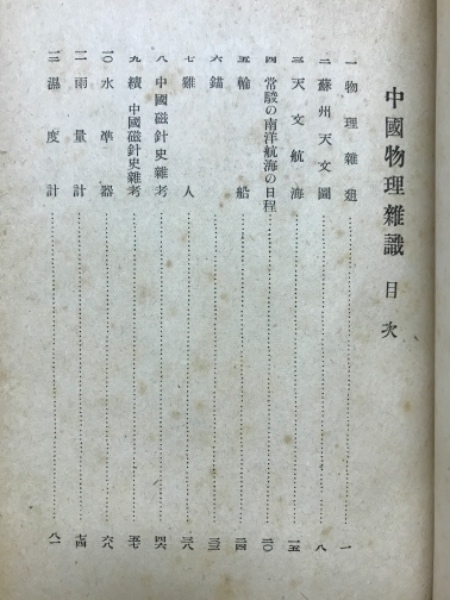 中國物理雜識 目次
一 物理雜題 一
二 蘇州天文圖 八
三 天文航海 一五
四 常駿の南洋航海の日程 二〇
五 輪船 二四
六 錨 三三
七 雞人 三八
八 中國磁針史雜考 四六
九 續 中國磁針史雜考 五七
一〇 水準器 六八
一一 雨量計 七四
一二 溫度計 八一